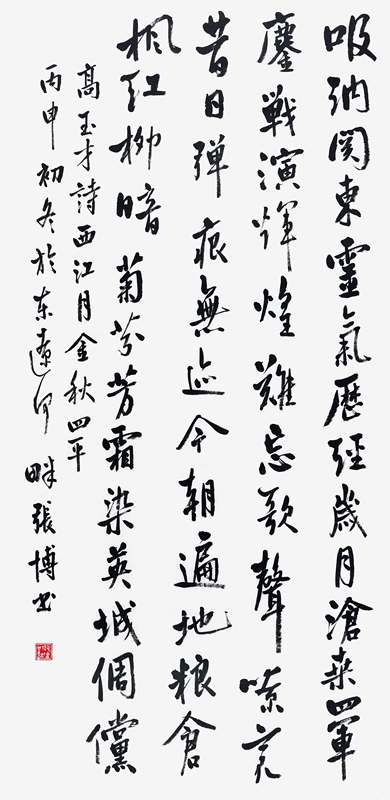 吸纳関東靈氣歷经歲月滄桒四軍
鏖戦演輝煌難忘歌聲嘹亮
昔日弹痕無迹今朝遍地粮倉
枫红柳暗菊芬芳霜染英城倜儻
高玉才詩西江月金秋四平
丙申初冬於东遼河畔張博书